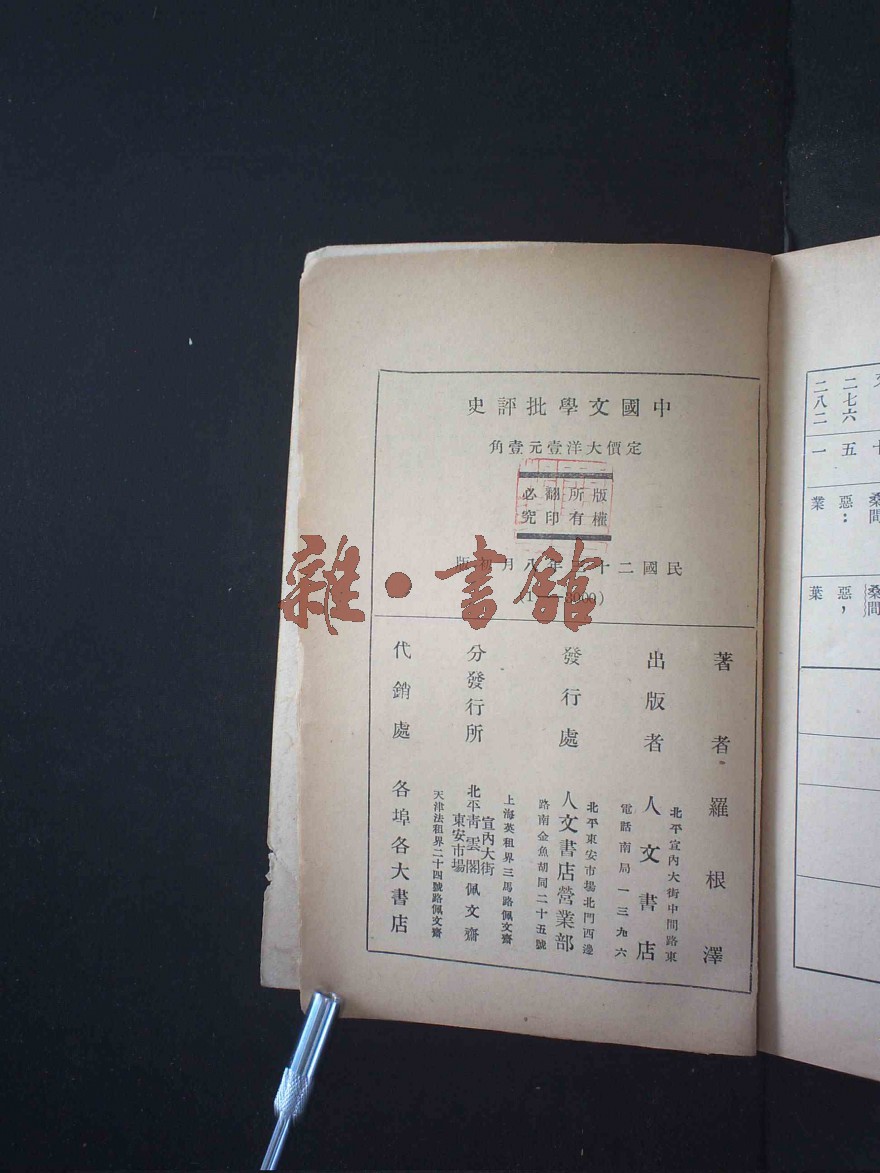 中國文學批評史
定價大洋壹元壹角
版權所有
翻印必究
民國二十三年八月初版
著者 羅根澤
出版者 人文書店
北平宣內大街中間路東
電話南局一三九六
發行處 人文書店營業部
北平東安市場北門西邊
路南金魚胡同二十五號
分發行所
上海英租界三馬路佩文齋
北平青雲閣佩文齋
宣內大街
東安市場
天津法租界二十四號路佩文齋
代銷處 各埠各大書店
雜·書館
五
二七六
一
二八二
桑間
惡：
業
桑間
惡，
葉